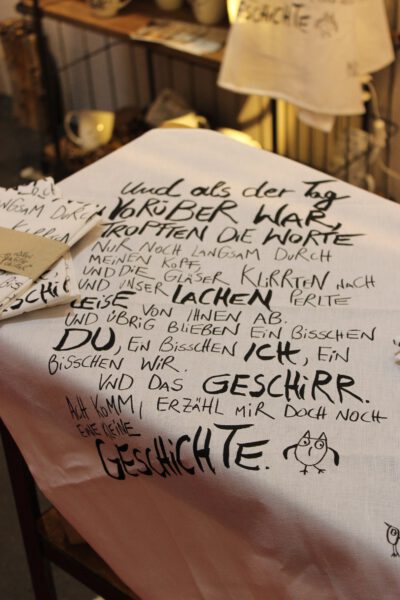 SCHICHTE
und als der Tag
VORÜBER WAR,
TROPFTEN DIE WORTE
NUR NOCH LANGSAM DURCH
MEINEN KOPF
UND DIE GLÄSER KLIRRTEN NACH
UND UNSER LACHEN PERLTE
LEISE VON IHNEN AB.
UND ÜBRIG BLIEBEN EIN BISSCHEN
DU, EIN BISSCHEN ICH, EIN
BISSCHEN WIR.
UND DAS GESCHIRR.
ACH KOMM, ERZÄHL MIR DOCH NOCH
EINE KLEINE
GESCHICHTE.
LANGSAM DURCH